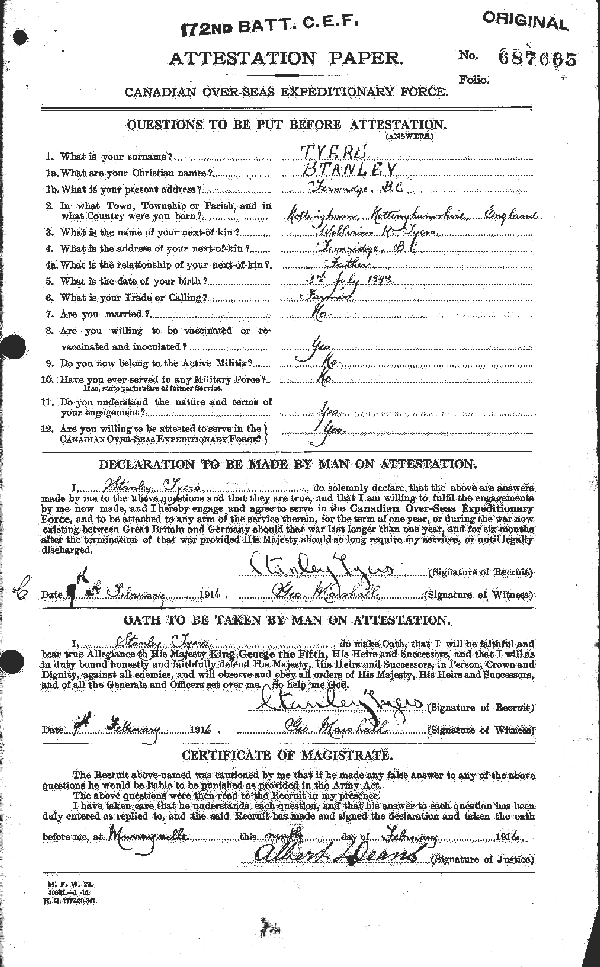 172ND BATT. C.E.F.
ORIGINAL
ATTESTATION PAPER.
No. 687665
Folio.
CANADIAN OVER-SEAS EXPEDITIONARY FORCE.
QUESTIONS TO BE PUT BEFORE ATTESTATION.
(ANSWERS)
1. What is your surname? TYERS
1a. What are your Christian names? STANLEY
1b. What is your present address? B.C.
2. In what Town, Township or Parish, and in
what Country were you born? Nottingham, Nottinghamshire, England
3. What is the name of your next-of-kin? Tyers
4. What is the address of your next-of-kin? B.C.
4a. What is the relationship of your next-of-kin? Father
5. What is the date of your birth? July
6. What is your Trade or Calling?
7. Are you married? No
8. Are you willing to be vaccinated or re-
vaccinated and inoculated? Yes
9. Do you now belong to the Active Militia? No
10. Have you ever served in any Military Force? No
If so, state particulars of former Service.
11. Do you understand the nature and terms of
your engagement? Yes
12. Are you willing to be attested to serve in the
CANADIAN OVER-SEAS EXPEDITIONARY FORCE? Yes
DECLARATION TO BE MADE BY MAN ON ATTESTATION.
I, Stanley Tyers, do solemnly declare that the above are answers
made by me to the above questions and that they are true, and that I am willing to fulfil the engagements
by me now made, and I hereby engage and agree to serve in the Canadian Over-Seas Expeditionary
Force, and to be attached to any arm of the service therein, for the term of one year, or during the war now
existing between Great Britain and Germany should that war last longer than one year, and for six months
after the termination of that war provided His Majesty should so long require my services, or until legally
discharged.
Stanley Tyers (Signature of Recruit)
Date February 1916 Geo Marshall (Signature of Witness)
OATH TO BE TAKEN BY MAN ON ATTESTATION.
I, Stanley Tyers, do make Oath, that I will be faithful and
bear true Allegiance to His Majesty King George the Fifth, His Heirs and Successors, and that I will as
in duty bound honestly and faithfully defend His Majesty, His Heirs and Successors, in Person, Crown and
Dignity, against all enemies, and will observe and obey all orders of His Majesty, His Heirs and Successors,
and of all the Generals and Officers set over me. So help me God.
Stanley Tyers (Signature of Recruit)
Date February 1916 Geo Marshall (Signature of Witness)
CERTIFICATE OF MAGISTRATE.
The Recruit above-named was cautioned by me that if he made any false answer to any of the above
questions he would be liable to be punished as provided in the Army Act.
The above questions were then read to the Recruit in my presence.
I have taken care that he understands each question, and that his answer to each question has been
duly entered as replied to, and the said Recruit has made and signed the declaration and taken the oath
before me, at this day of February 1916
Albert Deans (Signature of Justice)
M. F. W. 23.